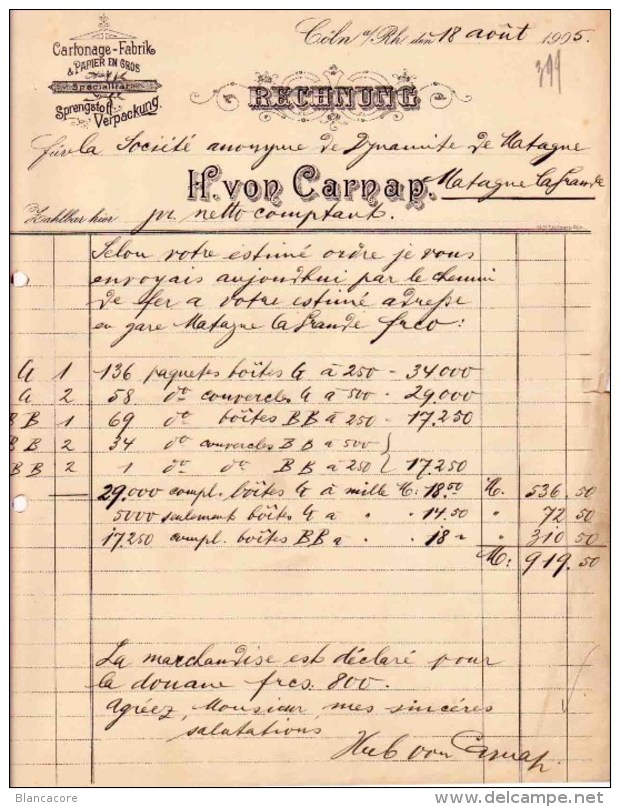 Cartonage-Fabrik
& PAPIER EN GROS
Specialität
Sprengstoff-
Verpackung.
Cöln a/Rh. den 18 août 1905.
399
RECHNUNG
für la Société anonyme de Dynamite de Matagne
H. von Carnap. Matagne la Grande
Zahlbar hier pr. netto comptant.
Selon votre estimé ordre je vous
envoyais aujourdhui par le chemin
de fer a votre estimé adresse
en gare Matagne la Grande frco:
G 1 136 paquetes boîtes G à 250 - 34000
G 2 58 do couvercles G à 500 - 29.000
BB 1 69 do boîtes BB à 250 - 17.250
BB 2 34 do couvercles BB à 500
BB 2 1 do do BB à 250 17.250
29.000 compl. boîtes G à mille M: 18.50 M. 536.50
5000 seulement boîtes G a " " 14.50 " 72 50
17.250 compl. boîtes BB a " " 18 " " 310 50
M: 919.50
La marchandise est déclaré pour
la douane frcs. 800.
Agréez, Monsieur, mes sincéres
salutations
Hub von Carnap
Blancacore
www.delcampe.net